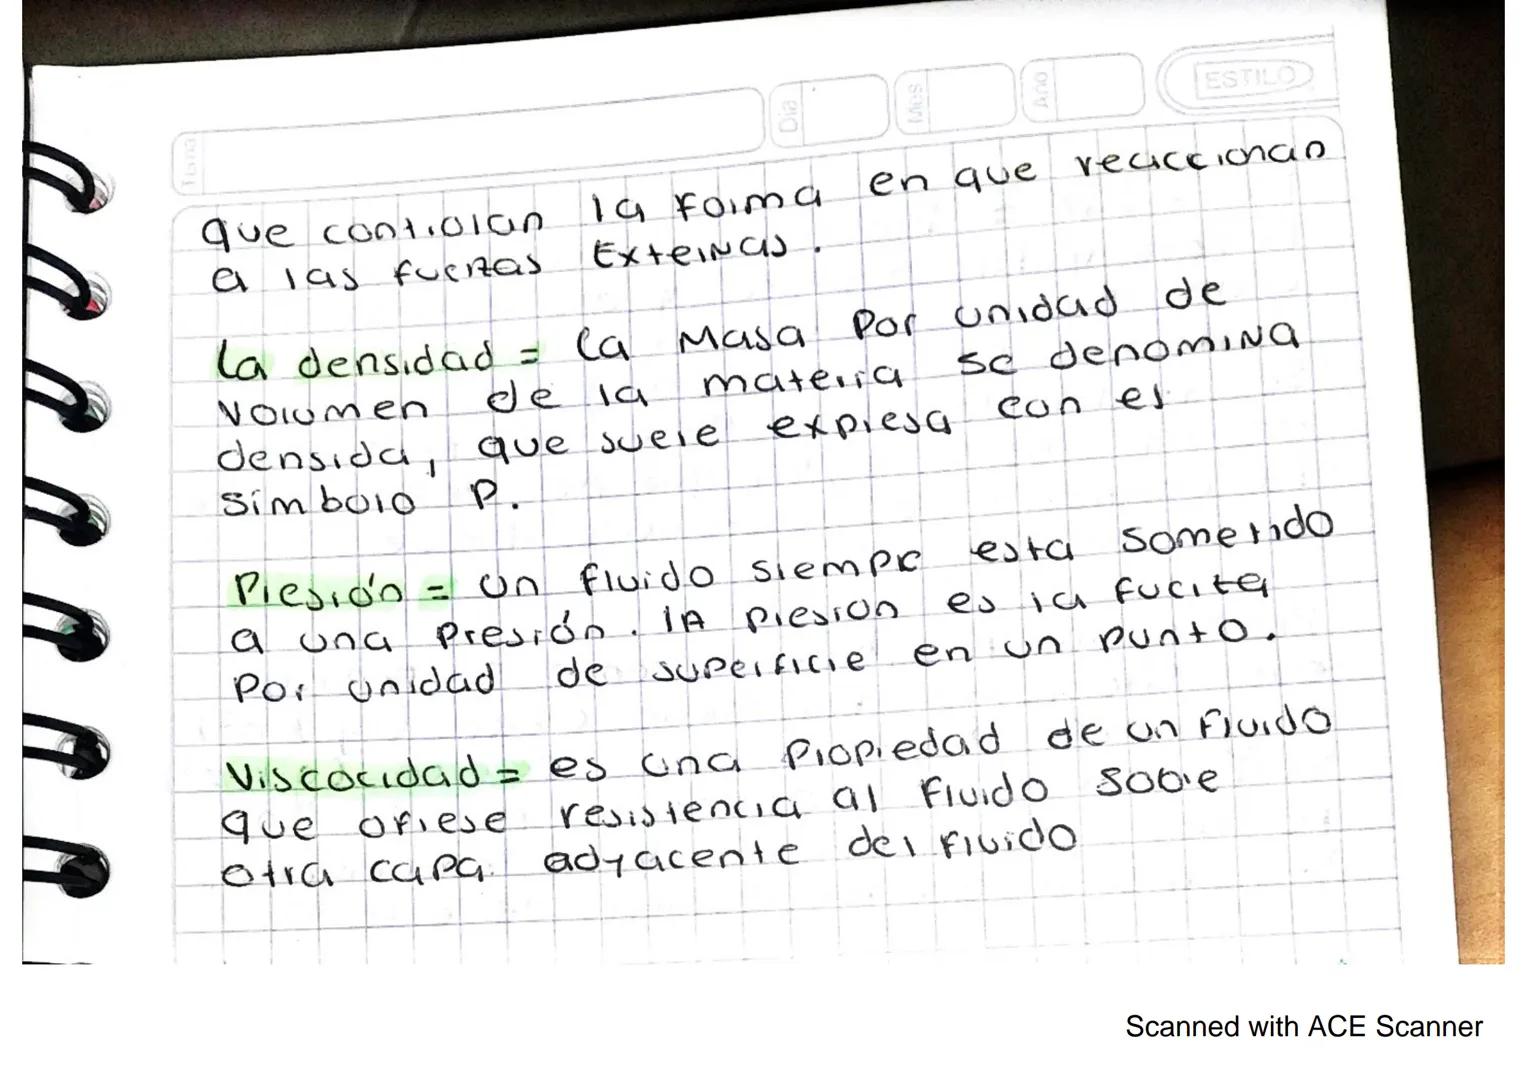 Tema
Dia
Mes
Año
ESTILO
que controlan la forma en que reaccionan
a las fuerzas Externas.
la densidad = la Masa Por unidad de
Volumen de la materia se denomina
densida, que suele expresa con el
simbolo P.
Presión = un fluido siempre esta sometido
a una Presión. lA presion es la fuerza
Por unidad de superficie en un punto.
Viscocidad = es una Propiedad de un fluido
que ofrese resistencia al fluido sobre
otra capa adyacente del fluido
Scanned with ACE Scanner